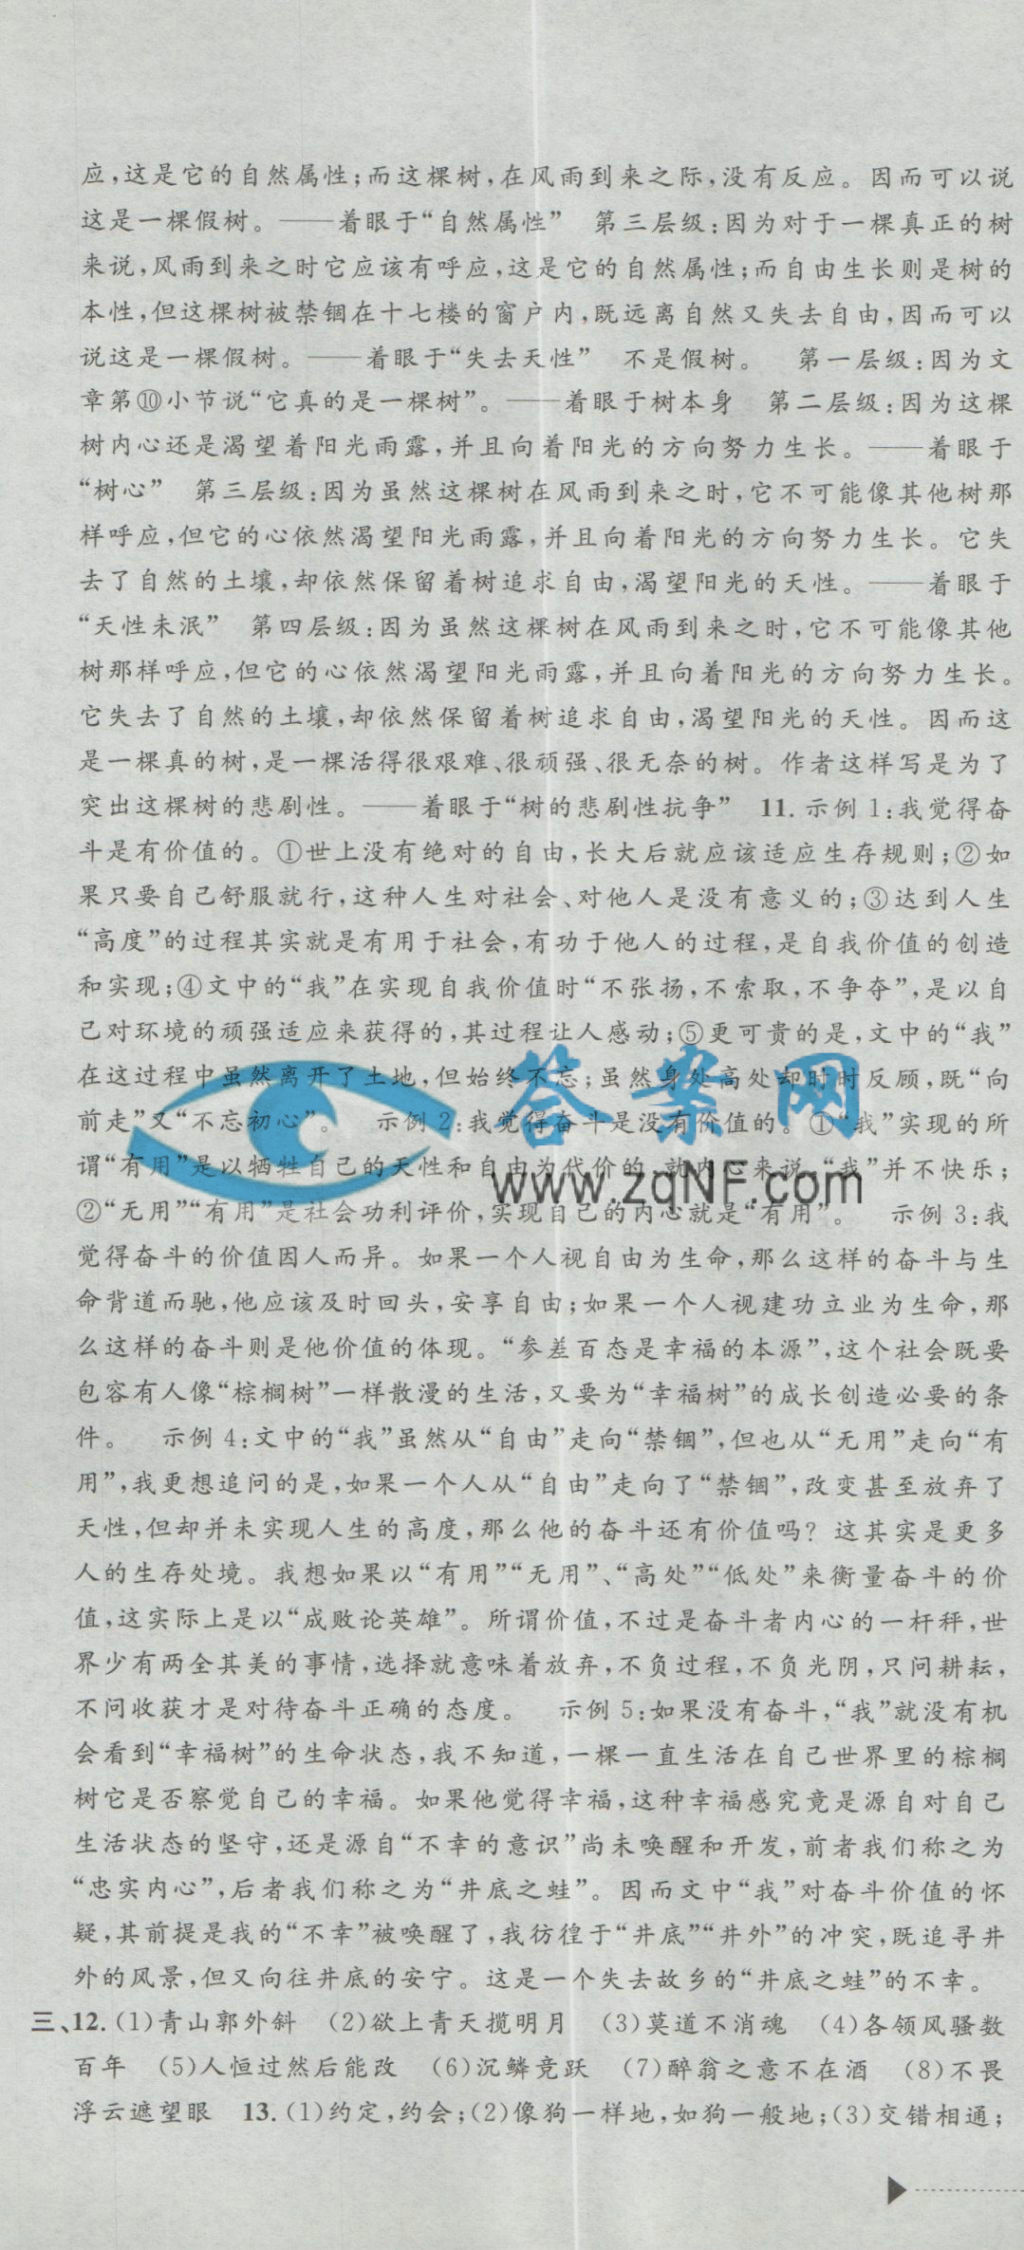 应,这是它的自然属性;而这棵树,在风雨到来之际,没有反应。因而可以说
这是一棵假树。——着眼于“自然属性” 第三层级:因为对于一棵真正的树
来说,风雨到来之时它应该有呼应,这是它的自然属性;而自由生长则是树的
本性,但这棵树被禁锢在十七楼的窗户内,既远离自然又失去自由,因而可以
说这是一棵假树。——着眼于“失去天性” 不是假树。 第一层级:因为文
章第⑩小节说“它真的是一棵树”。——着眼于树本身 第二层级:因为这棵
树内心还是渴望着阳光雨露,并且向着阳光的方向努力生长。——着眼于
“树心” 第三层级:因为虽然这棵树在风雨到来之时,它不可能像其他树那
样呼应,但它的心依然渴望阳光雨露,并且向着阳光的方向努力生长。它失
去了自然的土壤,却依然保留着树追求自由,渴望阳光的天性。——着眼于
“天性未泯” 第四层级:因为虽然这棵树在风雨到来之时,它不可能像其他
树那样呼应,但它的心依然渴望阳光雨露,并且向着阳光的方向努力生长。
它失去了自然的土壤,却依然保留着树追求自由,渴望阳光的天性。因而这
是一棵真的树,是一棵活得很艰难、很顽强、很无奈的树。作者这样写是为了
突出这棵树的悲剧性。——着眼于“树的悲剧性抗争” 11.示例1:我觉得奋
斗是有价值的。①世上没有绝对的自由,长大后就应该适应生存规则;②如
果只要自己舒服就行,这种人生对社会、对他人是没有意义的;③达到人生
“高度”的过程其实就是有用于社会,有功于他人的过程,是自我价值的创造
和实现;④文中的“我”在实现自我价值时“不张扬,不索取,不争夺”,是以自
己对环境的顽强适应来获得的,其过程让人感动;⑤更可贵的是,文中的“我”
在这过程中虽然离开了土地,但始终不忘;虽然身处高处却时时反顾,既“向
前走”又“不忘初心”。 示例2:我觉得奋斗是没有价值的。①“我”实现的所
谓“有用”是以牺牲自己的天性和自由为代价的,就内心来说,“我”并不快乐;
②“无用”“有用”是社会功利评价,实现自己的内心就是“有用”。 示例3:我
觉得奋斗的价值因人而异。如果一个人视自由为生命,那么这样的奋斗与生
命背道而驰,他应该及时回头,安享自由;如果一个人视建功立业为生命,那
么这样的奋斗则是他价值的体现。“参差百态是幸福的本源”,这个社会既要
包容有人像“棕榈树”一样散漫的生活,又要为“幸福树”的成长创造必要的条
件。 示例4:文中的“我”虽然从“自由”走向“禁锢”,但也从“无用”走向“有
用”,我更想追问的是,如果一个人从“自由”走向了“禁锢”,改变甚至放弃了
天性,但却并未实现人生的高度,那么他的奋斗还有价值吗?这其实是更多
人的生存处境。我想如果以“有用”“无用”、“高处”“低处”来衡量奋斗的价
值,这实际上是以“成败论英雄”。所谓价值,不过是奋斗者内心的一杆秤,世
界少有两全其美的事情,选择就意味着放弃,不负过程,不负光阴,只问耕耘,
不问收获才是对待奋斗正确的态度。 示例5:如果没有奋斗,“我”就没有机
会看到“幸福树”的生命状态,我不知道,一棵一直生活在自己世界里的棕榈
树它是否察觉自己的幸福。如果他觉得幸福,这种幸福感究竟是源自对自己
生活状态的坚守,还是源自“不幸的意识”尚未唤醒和开发,前者我们称之为
“忠实内心”,后者我们称之为“井底之蛙”。因而文中“我”对奋斗价值的怀
疑,其前提是我的“不幸”被唤醒了,我彷徨于“井底”“井外”的冲突,既追寻井
外的风景,但又向往井底的安宁。这是一个失去故乡的“井底之蛙”的不幸。
三、12.(1)青山郭外斜 (2)欲上青天揽明月 (3)莫道不消魂 (4)各领风骚数
百年 (5)人恒过然后能改 (6)沉鳞竞跃 (7)醉翁之意不在酒 (8)不畏
浮云遮望眼 13.(1)约定,约会;(2)像狗一样地,如狗一般地;(3)交错相通;
答案网
www.zqNF.com